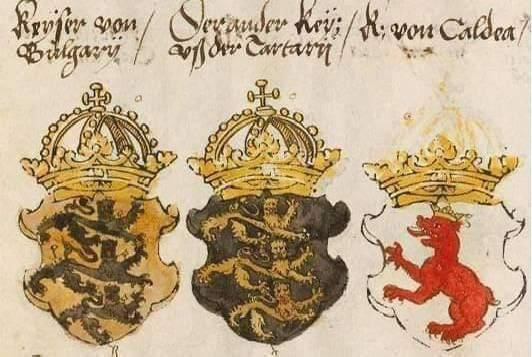 Keyser von
Bulgarÿ /
Der ander Key:
uß der Tartarÿ /
K: von Caldea /